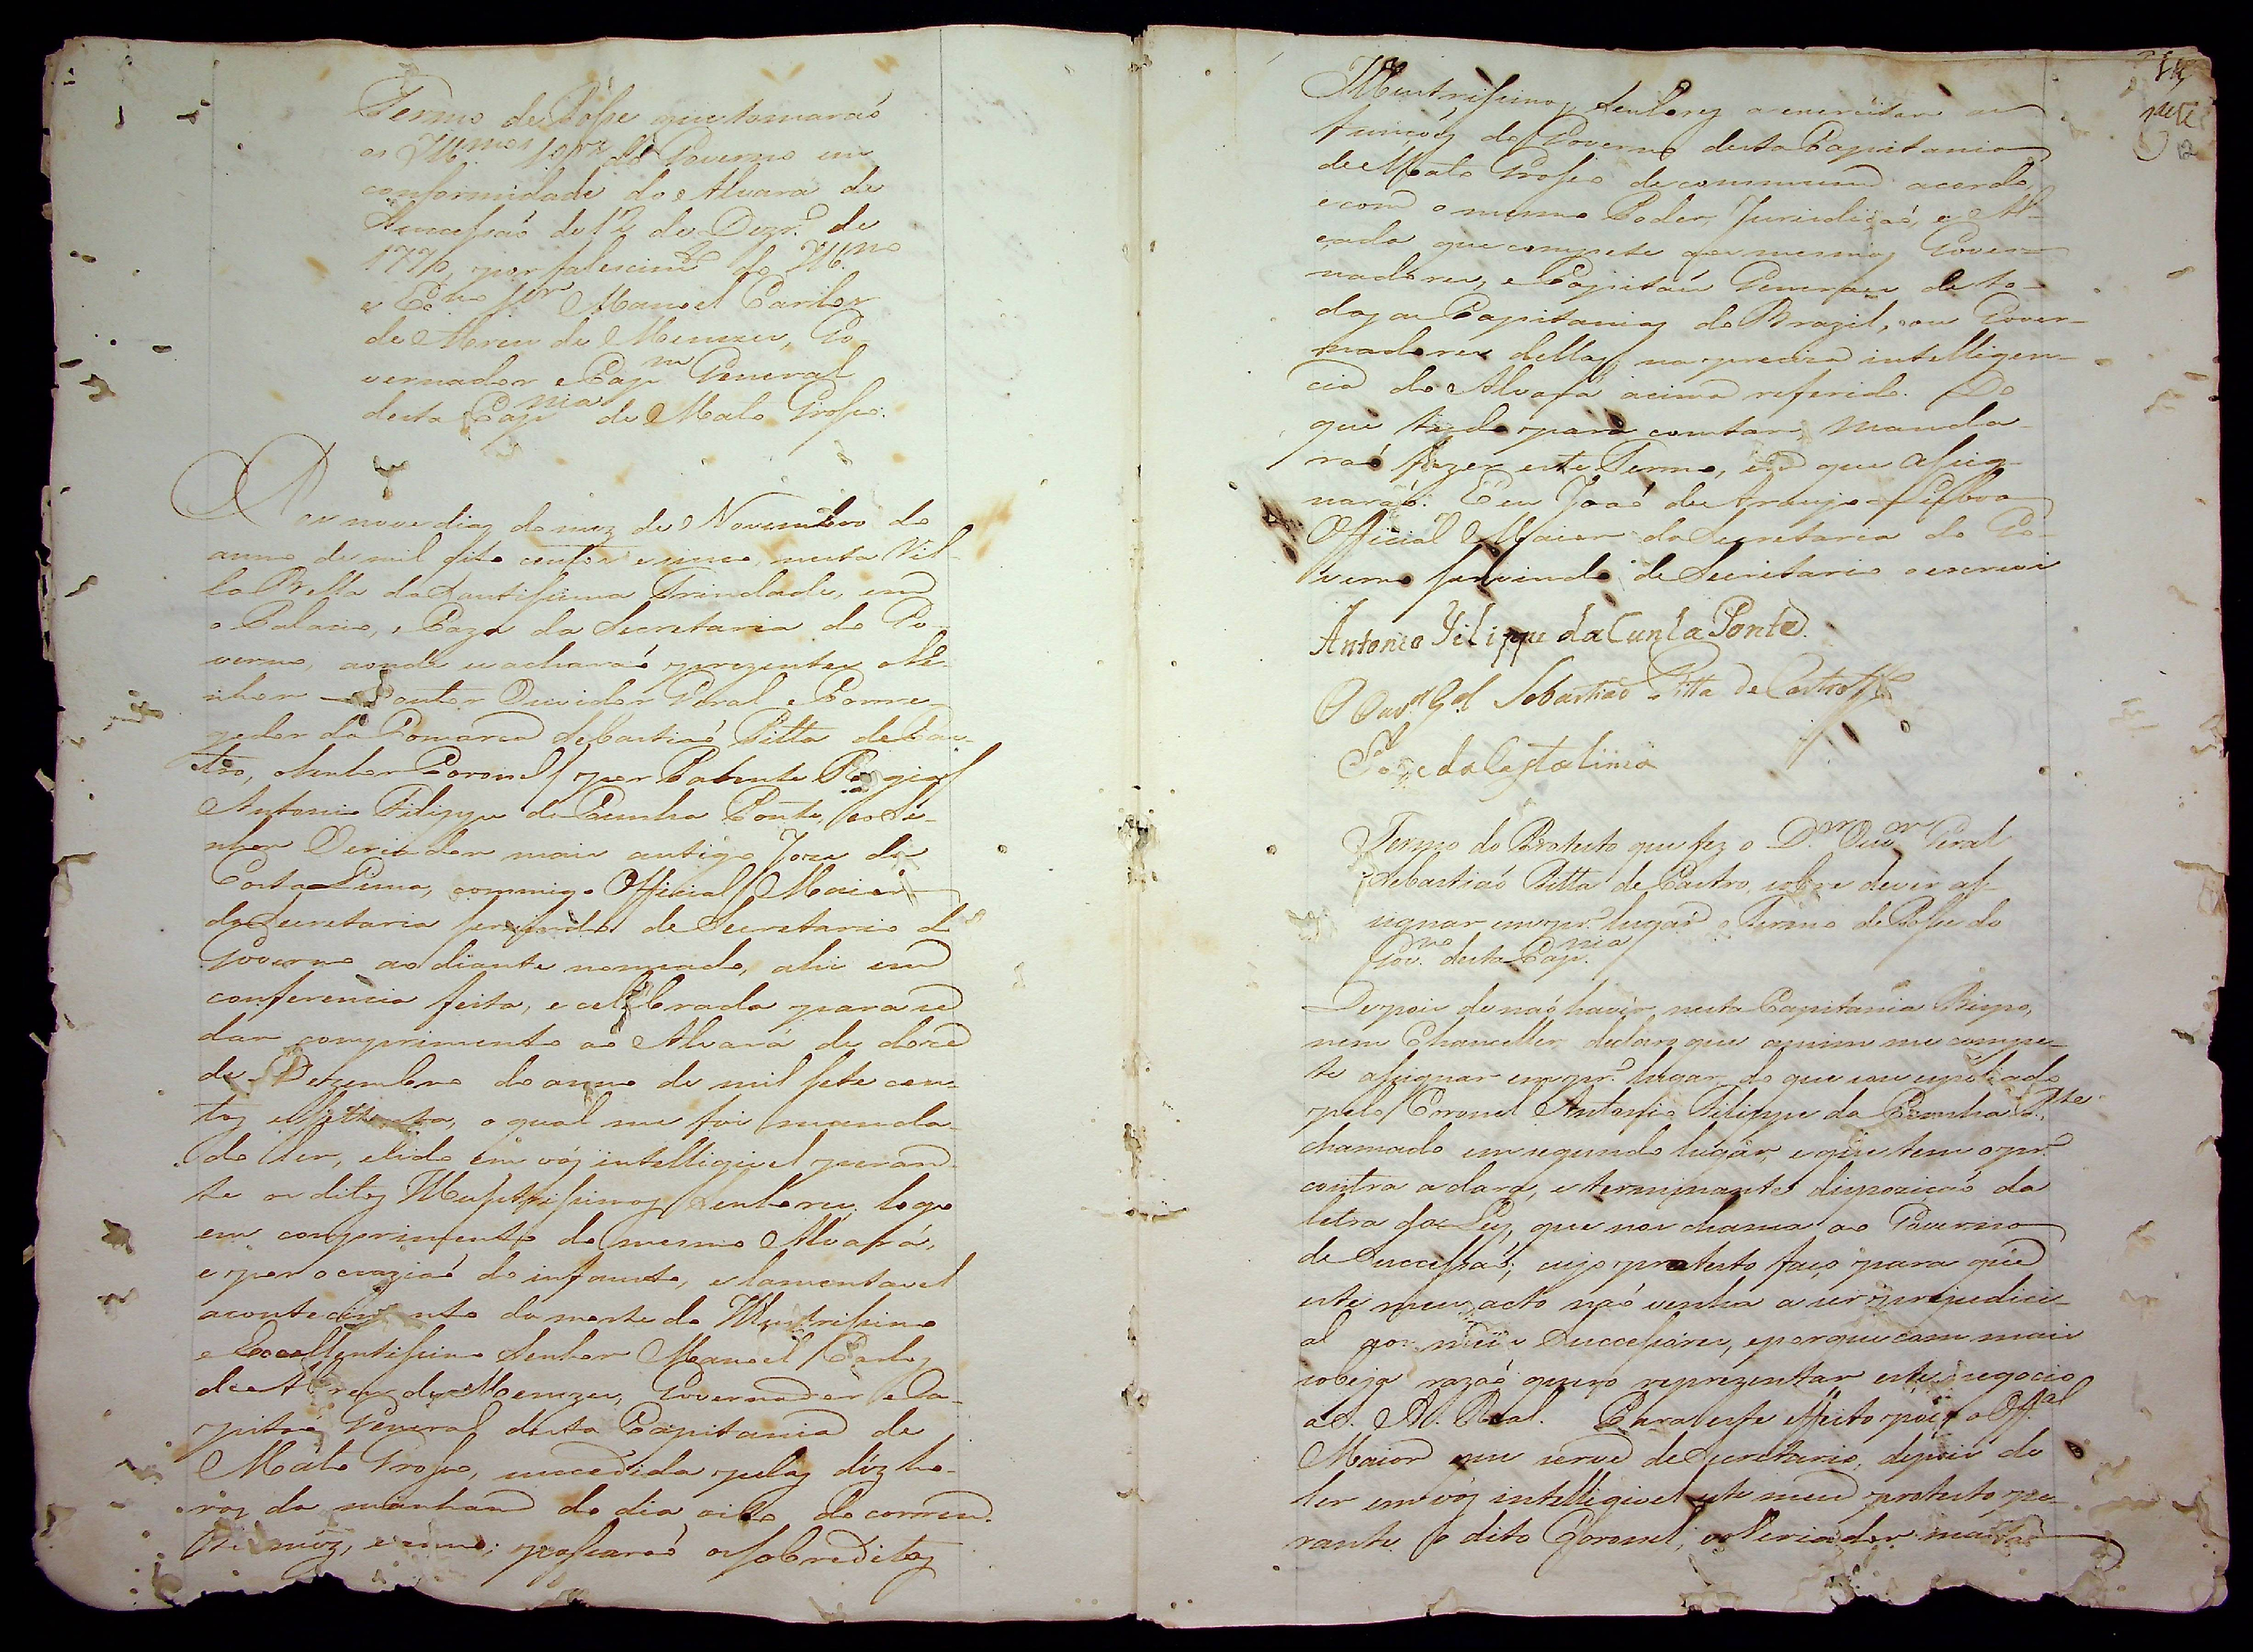 Termo de Posse que tomaraõ
os Ill.mos S.res do Governo em
conformidade do Alvará de
Successaõ de 12 de Dezr.º de
1770, por falescim.to do Ill.mo
e Ex.mo Sr. Manoel Carlos
de Abreu de Menezes, Go
vernador e Cap.m General
desta Cap.nia de Mato Grosso.
Aos nove dias do mez de Novembro do
anno de mil oito centos e cinco, nesta Vil-
la Bella da Santissima Trindade, em
o Palacio, e Caza da Secretaria do Go-
verno, aonde se acharaõ prezentes o Se-
nhor Doutor Ouvidor Geral e Corre-
gedor da Comarca Sebastiaõ Pitta de Cas-
tro, o Senhor Coronel por Patente Regia
Antonio Filippe da Cunha Ponte, e o Se-
nhor Veriador mais antigo Joze da
Costa Lima, commigo Official Maior
da Secretaria servindo de Secretario do
Governo ao diante nomeado, ahi em
conferencia feita, e celebrada para se
dar comprimento ao Alvará de doze
de Dezembro do anno de mil sete cen-
tos e settenta, o qual me foi manda-
do ler, e lido em vóz intelligivel peran-
te os ditos Illustrissimos Senhores, logo
em comprimento do mesmo Alvará,
e por occaziaõ do infausto, e lamentavel
acontecimento da morte do Illustrissimo
e Excellentissimo Senhor Manoel Carlos
de Abreu de Menezes, Governador e Ca-
pitaõ General desta Capitania de
Mato Grosso, succedida pelas déz ho-
ras da manhan do dia oito do corren-
te mêz, e anno; passaraõ os sobreditos
Illustrissimos Senhores a exercitar as
funçoẽs do Governo desta Capitania
de Mato Grosso de commum acordo,
e com o mesmo Poder, Jurisdiçaõ, e Al-
çada, que compete aos mesmos Gover-
nadores, e Capitaẽs Generaes de to-
das as Capitanias do Brazil, ou Gover-
nadores dellas, na preciza intelligen-
cia do Alvará acima referido. Do
que tudo para constar, manda-
raõ fazer este Termo, em que assig-
naraõ. E eu Joaõ de Araujo Lisboa
Official Maior da Secretaria do Go-
verno servindo de Secretario o escrevi
Antonio Filippe da Cunha Ponte
O Ouv.or G.al Sebastiaõ Pitta de Castro
Joze da Costa Lima
Termo do Protesto que fez o D.or Ouv.or Geral
Sebastiaõ Pitta de Castro, sobre dever as-
signar em pr.º lugar o Termo de Posse do
Gov.no desta Cap.nia
Depois de naõ havêr nesta Capitania Bispo,
nem Chanceller, declaro que a mim me compe-
te assignar em pr.º lugar, do que sou espoliado
pelo Coronel Antonio Filippe da Cunha P.te
chamado em segundo lugar, e que tem o pr.º
contra a clara, e terminante dispozicaõ da
letra da Ley, que nos chama ao Governo
de Successaõ; cujo protesto faço para que
este meu acto naõ venha a ser prejudici-
al aos meus Successores, e porque com mais
sobeja razaõ quero reprezentar este negocio
a S. A. Real. Para esse effeito poes o Off.al
Maior que serve de Secretario, depois de
ler em vóz intelligivel este meu protesto pe-
rante o dito Coronel, e o Veriador mais